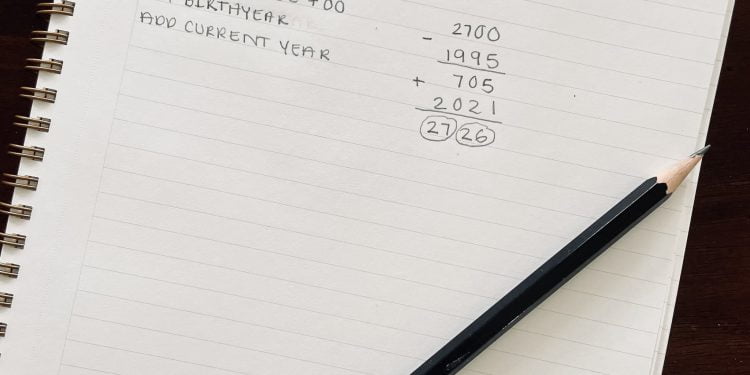 +00
BIRTHYEAR
ADD CURRENT YEAR
2700
- 1995
+ 705
2021
27 26